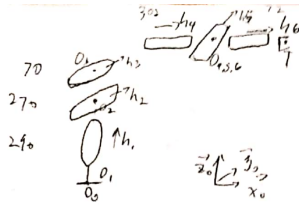 302 h4 h5 72 h6
70 O3 h3 O4,5,6
270 O2 h2
290 h1
O1
O0
z0 y0 x0